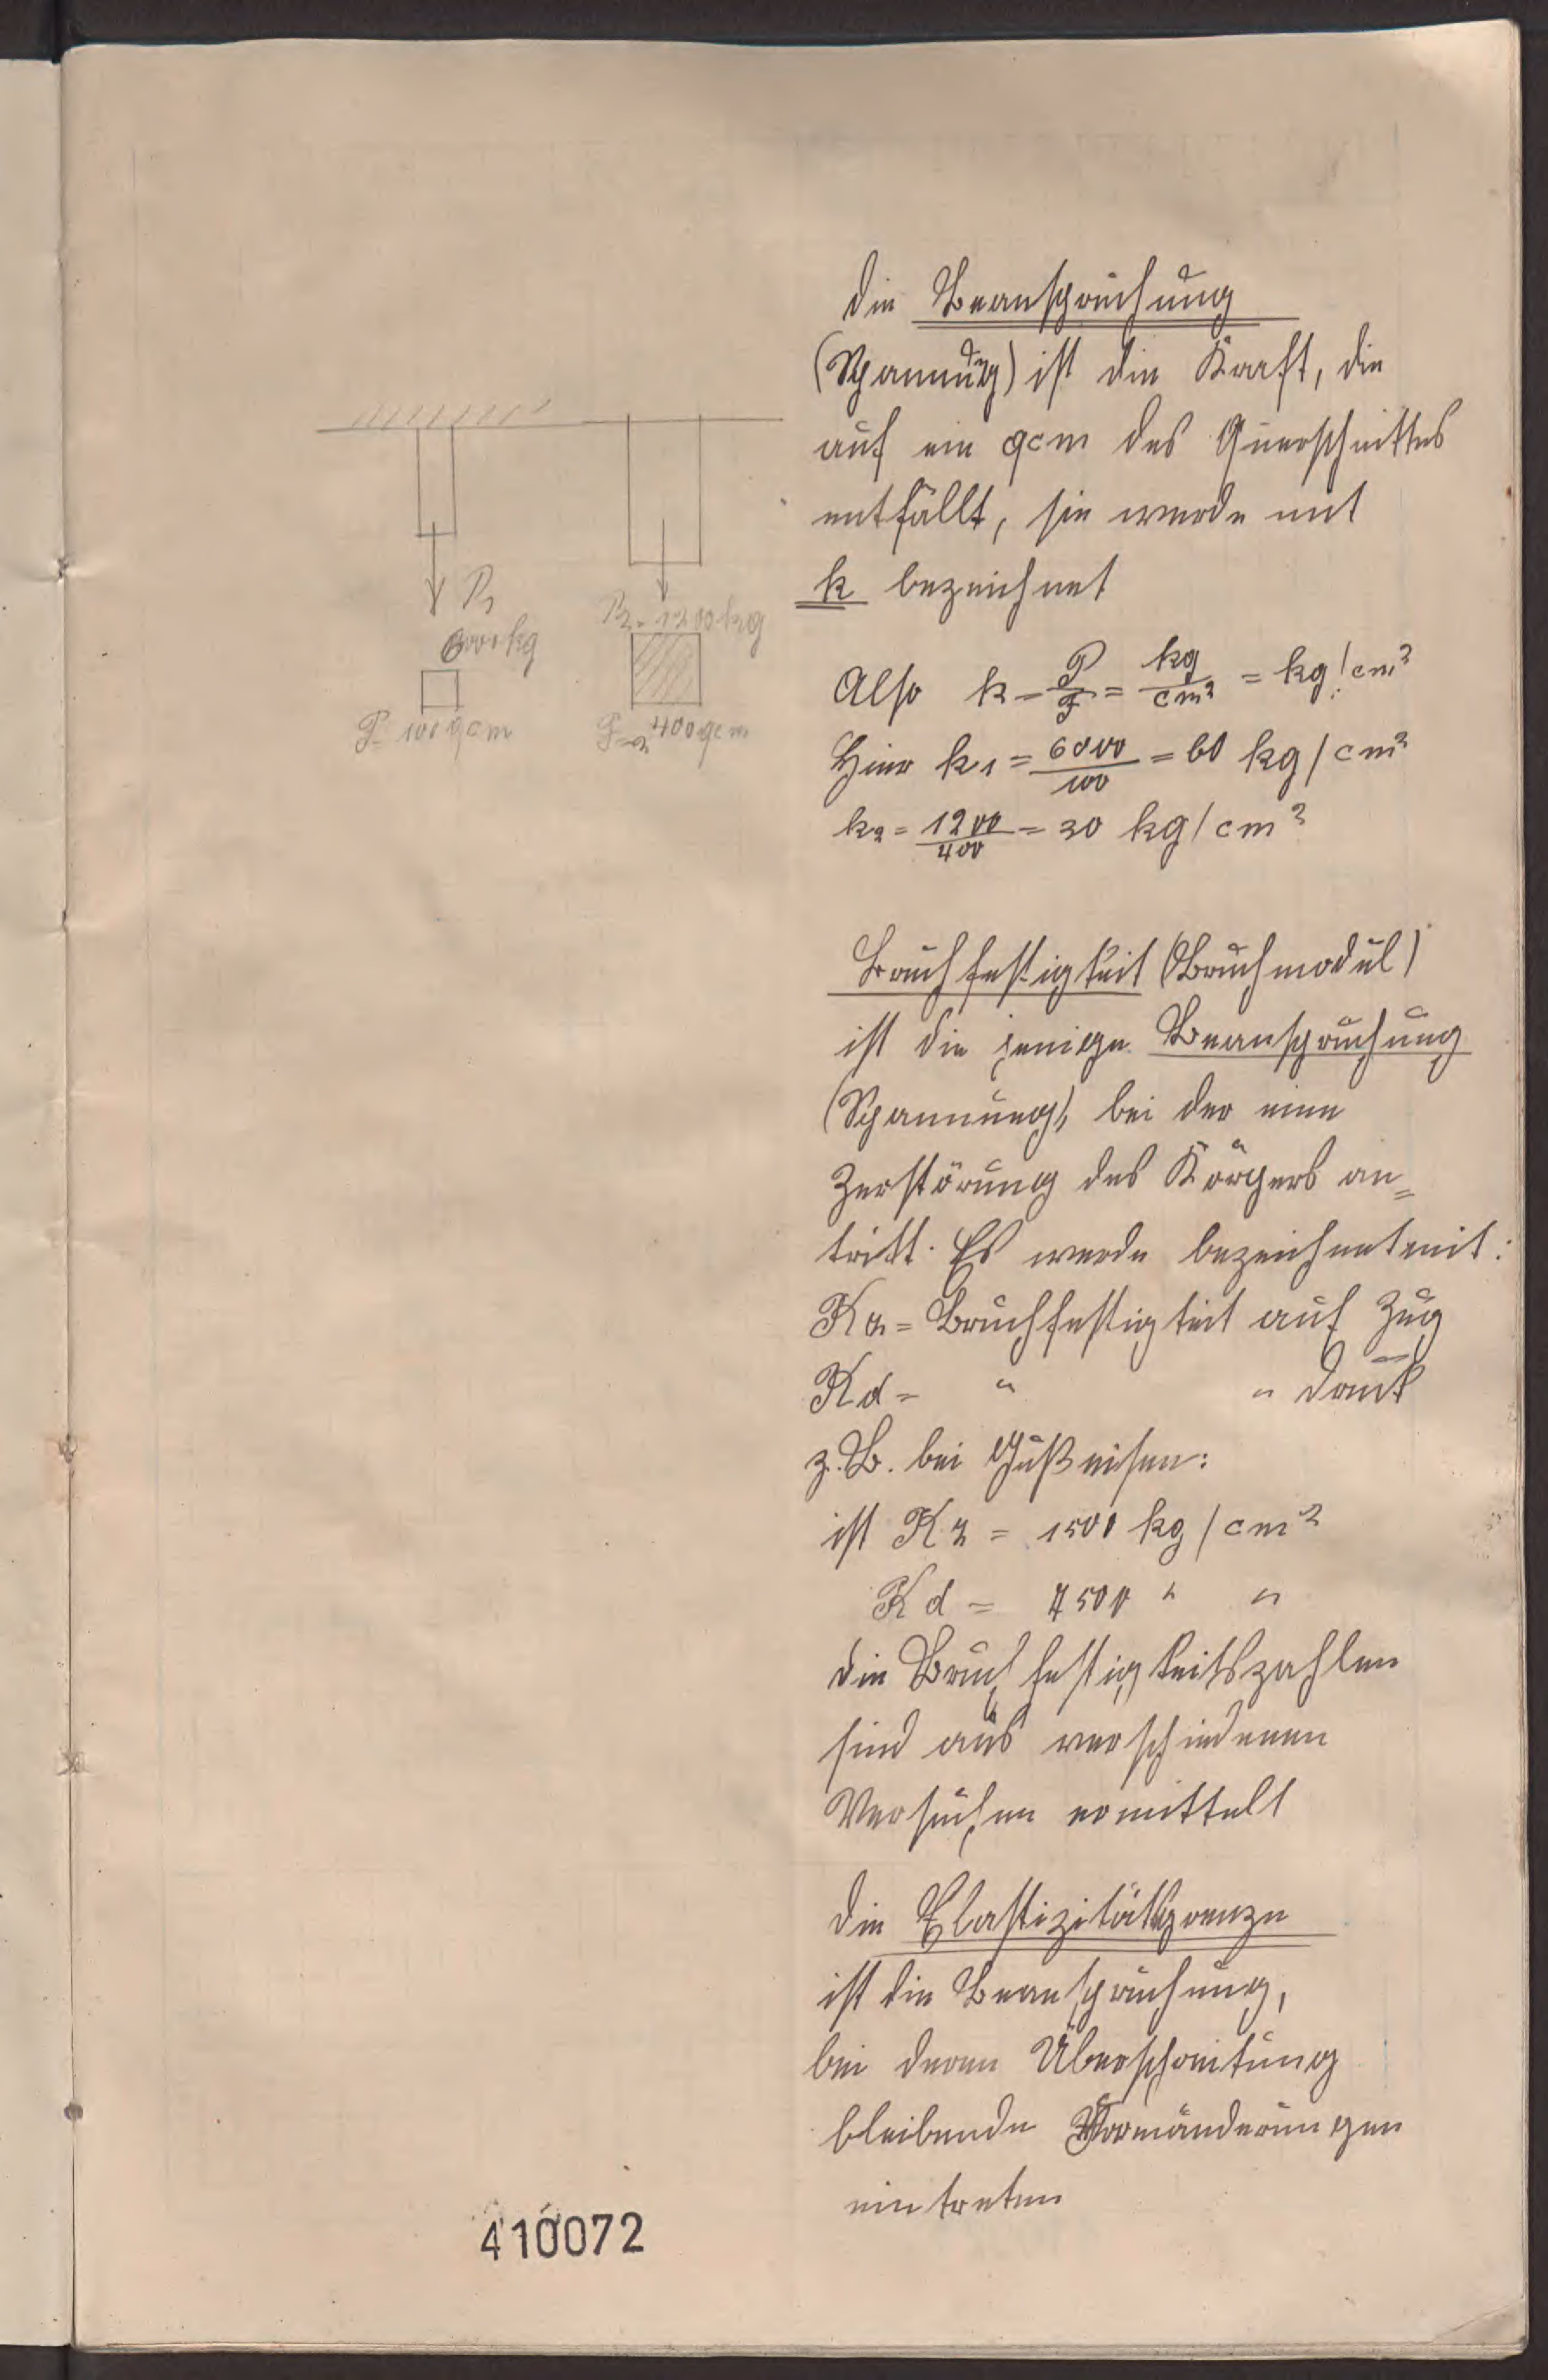 die Beanspruchung
(Spannung) ist die Kraft, die
auf ein qcm des Querschnittes
entfällt, sie werde mit
k bezeichnet
P1
6000 kg
P2 = 1200 kg
F = 100 qcm
F2 = 400 qcm
Also k = P/F = kg/cm² = kg/cm²
Hier k1 = 6000/100 = 60 kg/cm²
k2 = 1200/400 = 30 kg/cm²
Bruchfestigkeit (Bruchmodul)
ist die jenige Beanspruchung
(Spannung), bei der eine
Zerstörung des Körpers an=
tritt. Es werde bezeichnet mit:
Kz = Bruchfestigkeit auf Zug
Kd = " " Druck
z.B. bei Gußeisen:
ist Kz = 1500 kg/cm²
Kd = 7500 " "
die Bruchfestigkeitszahlen
sind aus verschiedenen
Versuchen ermittelt
die Elastizitätsgrenze
ist die Beanspruchung,
bei deren Überschreitung
bleibende Formänderungen
eintreten
410072